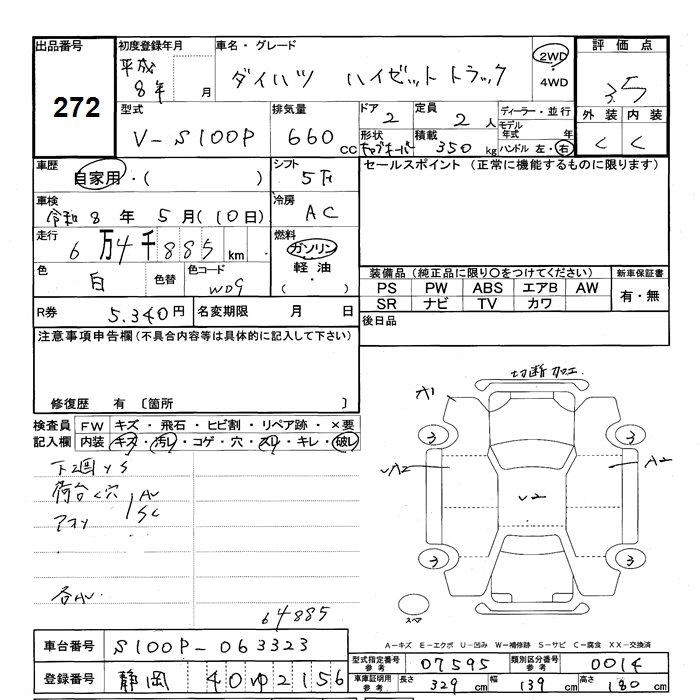 出品番号
272
初度登録年月
平成
8年 月
車名・グレード
ダイハツ ハイゼットトラック
2WD
・
4WD
評価点
3.5
外装 内装
C C
型式
V-S100P
排気量
660 cc
ドア
2
定員
2人
ディーラー・並行
モデル
年式 年
ハンドル 左・右
形状
積載
350 kg
車歴
自家用・( )
シフト
5F
セールスポイント (正常に機能するものに限ります)
車検
令和8年5月(10日)
冷房
AC
走行
6万4千885km
燃料
ガソリン
軽油
( )
色
白
色替
色コード
W09
装備品(純正品に限り○をつけてください)
新車保証書
PS PW ABS エアB AW
SR ナビ TV カワ
有・無
R券
5,340円
名変期限 月 日
後日品
注意事項申告欄(不具合内容等は具体的に記入して下さい)
修復歴 有 〔箇所 〕
検査員
記入欄
FW キズ・飛石・ヒビ割・リペア跡・×要
内装 キズ・汚レ・コゲ・穴・スレ・キレ・破レ
下廻りS
荷台く穴
切断加工
A1
3 3
A2
U2
3 3
スペア
64885
A-キズ E-エクボ U-凹み W-補修跡 S-サビ C-腐食 XX-交換済
車台番号
S100P-063323
登録番号
静岡 40 ゆ 2156
型式指定番号
参考
07595
類別区分番号
参考
0014
車庫証明用
参考
長さ 329 cm
幅 139 cm
高さ 180 cm